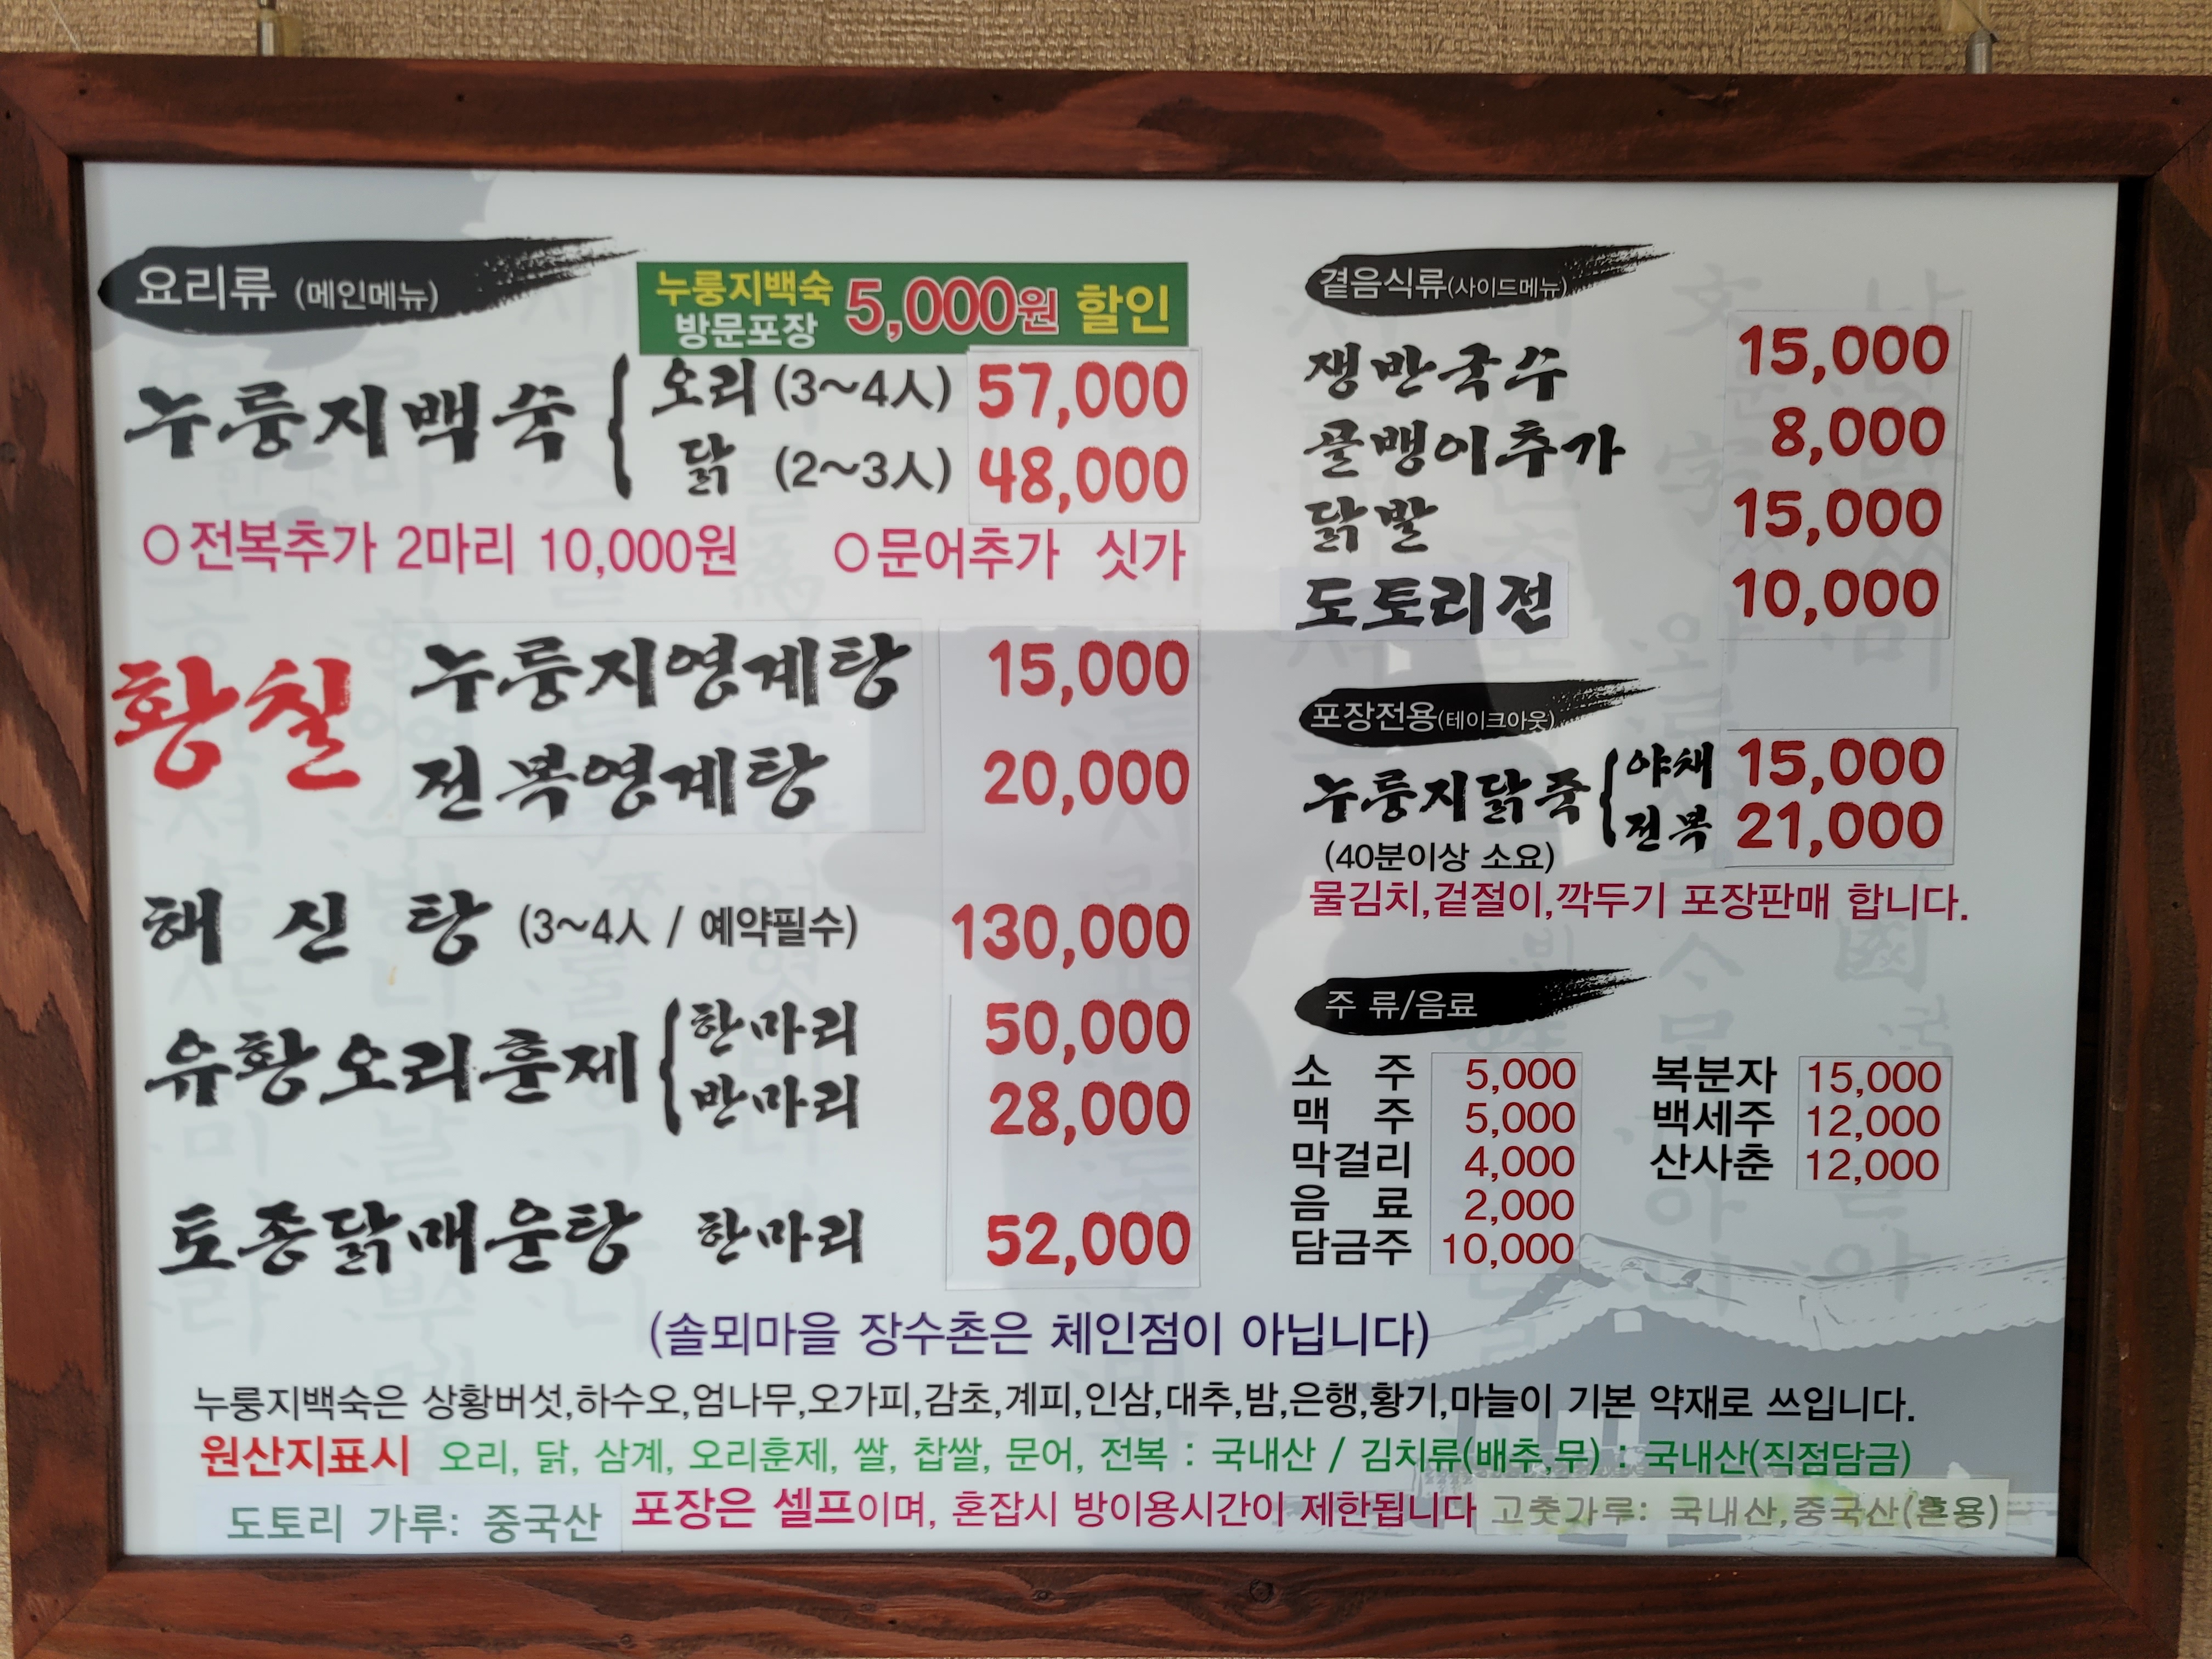 요리류 (메인메뉴)
누룽지백숙 방문포장 5,000원 할인
누룽지백숙
오리 (3~4人) 57,000
닭 (2~3人) 48,000
○전복추가 2마리 10,000원 ○문어추가 싯가
황칠
누룽지영계탕 15,000
전복영계탕 20,000
해신탕 (3~4人 / 예약필수) 130,000
유황오리훈제
한마리 50,000
반마리 28,000
토종닭매운탕 한마리 52,000
곁음식류(사이드메뉴)
쟁반국수 15,000
골뱅이추가 8,000
닭발 15,000
도토리전 10,000
포장전용(테이크아웃)
누룽지닭죽
야채 15,000
전복 21,000
(40분이상 소요)
물김치,겉절이,깍두기 포장판매 합니다.
주 류/음료
소 주 5,000
맥 주 5,000
막걸리 4,000
음 료 2,000
담금주 10,000
복분자 15,000
백세주 12,000
산사춘 12,000
(솔뫼마을 장수촌은 체인점이 아닙니다)
누룽지백숙은 상황버섯,하수오,엄나무,오가피,감초,계피,인삼,대추,밤,은행,황기,마늘이 기본 약재로 쓰입니다.
원산지표시 오리, 닭, 삼계, 오리훈제, 쌀, 찹쌀, 문어, 전복 : 국내산 / 김치류(배추,무) : 국내산(직접담금)
도토리 가루: 중국산 포장은 셀프이며, 혼잡시 방이용시간이 제한됩니다 고춧가루: 국내산,중국산(혼용)